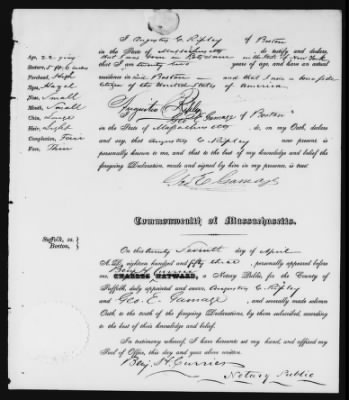 I Augustus C. Ripley of Boston
in the State of Massachusetts do testify and declare
that I was born in in the State of New York
that I am twenty two years of age and have an actual
residence in said Boston — and that I am a bona fide
citizen of the United States of America.
Age, 22 years
Stature, 5 ft. 6 inches
Forehead, High
Eyes, Hazel
Nose, Small
Mouth, Small
Chin, Large
Hair, Light
Complexion, Fair
Face, Thin
Augustus C. Ripley
I, Geo E. Gamage of Boston
in the State of Massachusetts do, on my Oath, declare
and say, that Augustus C. Ripley now present is
personally known to me, and that to the best of my knowledge and belief the
foregoing Declaration, made and signed by him in my presence, is true.
Geo E. Gamage
Commonwealth of Massachusetts.
Suffolk, ss.
Boston,
On this twenty Seventh day of April
A. D. eighteen hundred and fifty three, personally appeared before
me, Benj. H. Currier
CHARLES HAYWARD, a Notary Public, for the County of
Suffolk, duly appointed and sworn, Augustus C. Ripley
and Geo. E. Gamage, and severally made solemn
Oath to the truth of the foregoing Declarations, by them subscribed, according
to the best of their knowledge and belief.
In testimony whereof, I have hereunto set my hand, and affixed my
Seal of Office, this day and year above written.
Benj. H. Currier
Notary Public